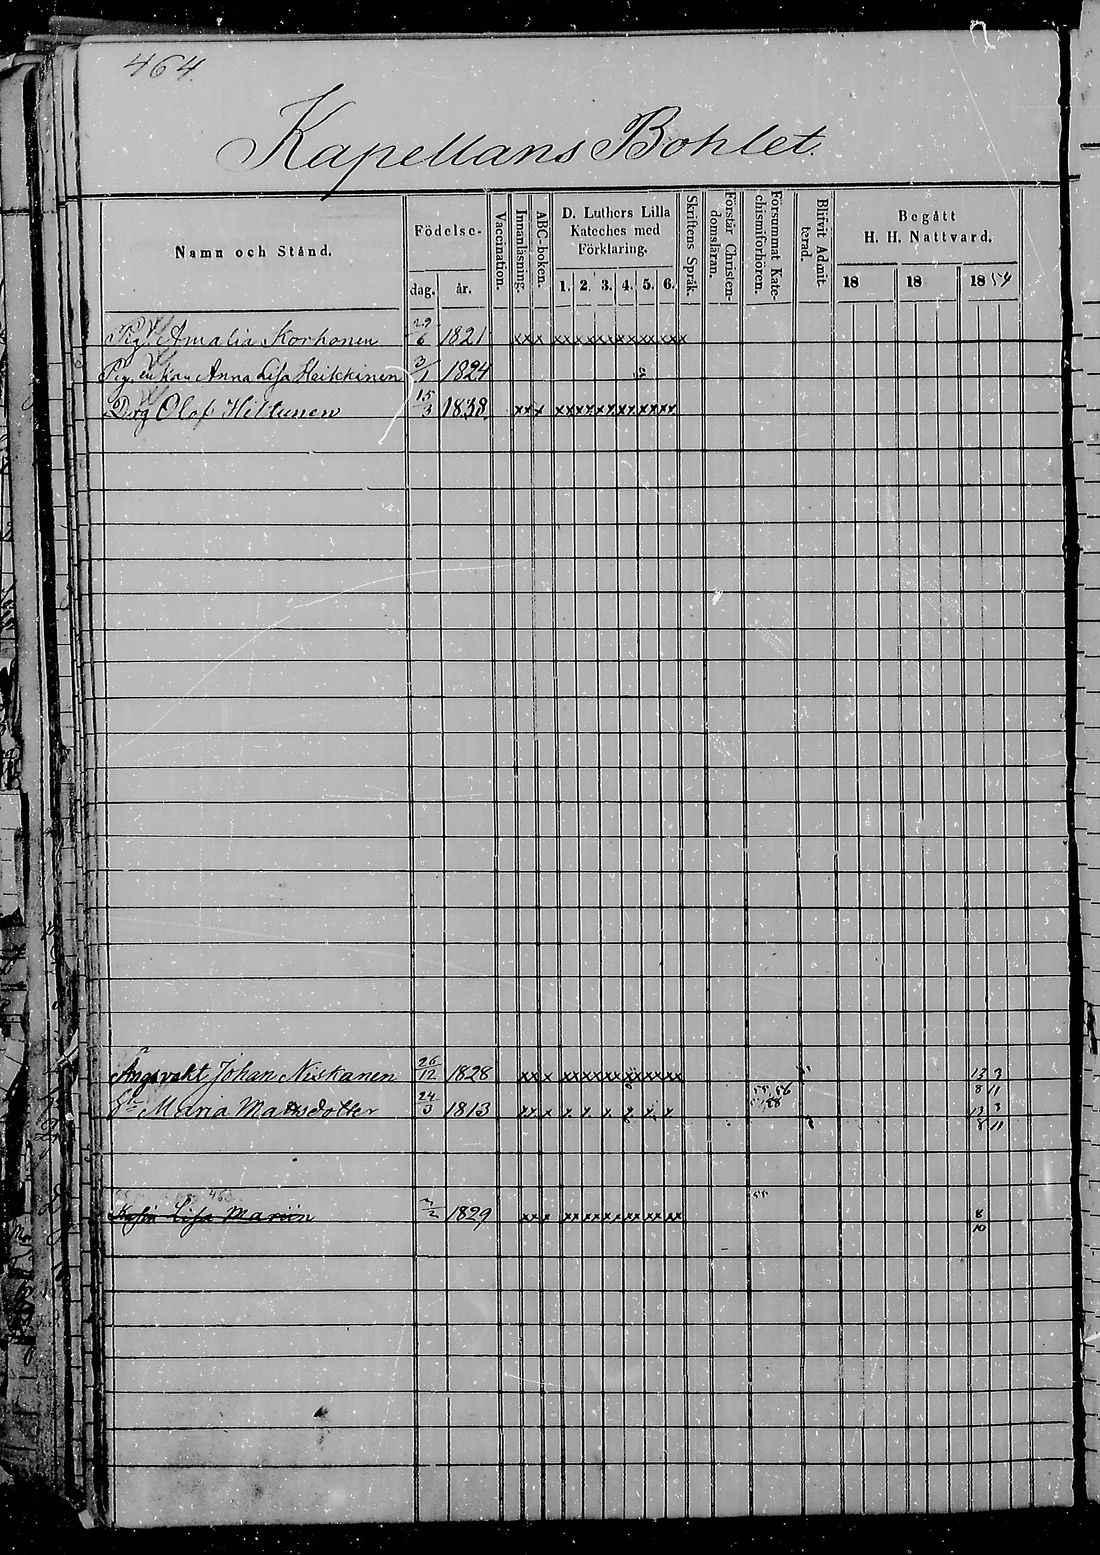 464
Kapellans Bohlet.
Namn och Stånd. Födelse- dag. år. Vaccination. Innanläsning. ABC-boken. D. Luthers Lilla Kateches med Förklaring. 1. 2. 3. 4. 5. 6. Skriftens Språk. Förstår Christen-domsläran. Försummat Kate-chismiförhören. Blifvit Admit-terad. Begått H. H. Nattvard. 18 18 1854
Pig. Amalia Korhonen 29/6 1821 xxx xxxxxxxxxxxxx
Anna Lisa Heikkinen 3/1 1824
Drg Olof Heltunen 15/3 1838 xxx xxxxxxxxxxxx
Johan Niskanen 26/12 1828 xxx xxxxxxxxxxxx 13 3
8 11
Maria Matsdotter 24/3 1813 xxx x x x x x x 55, 56 58 13 3
8 11
Lisa 1829 xxx xxxxxxxxxxxx 55 8
10